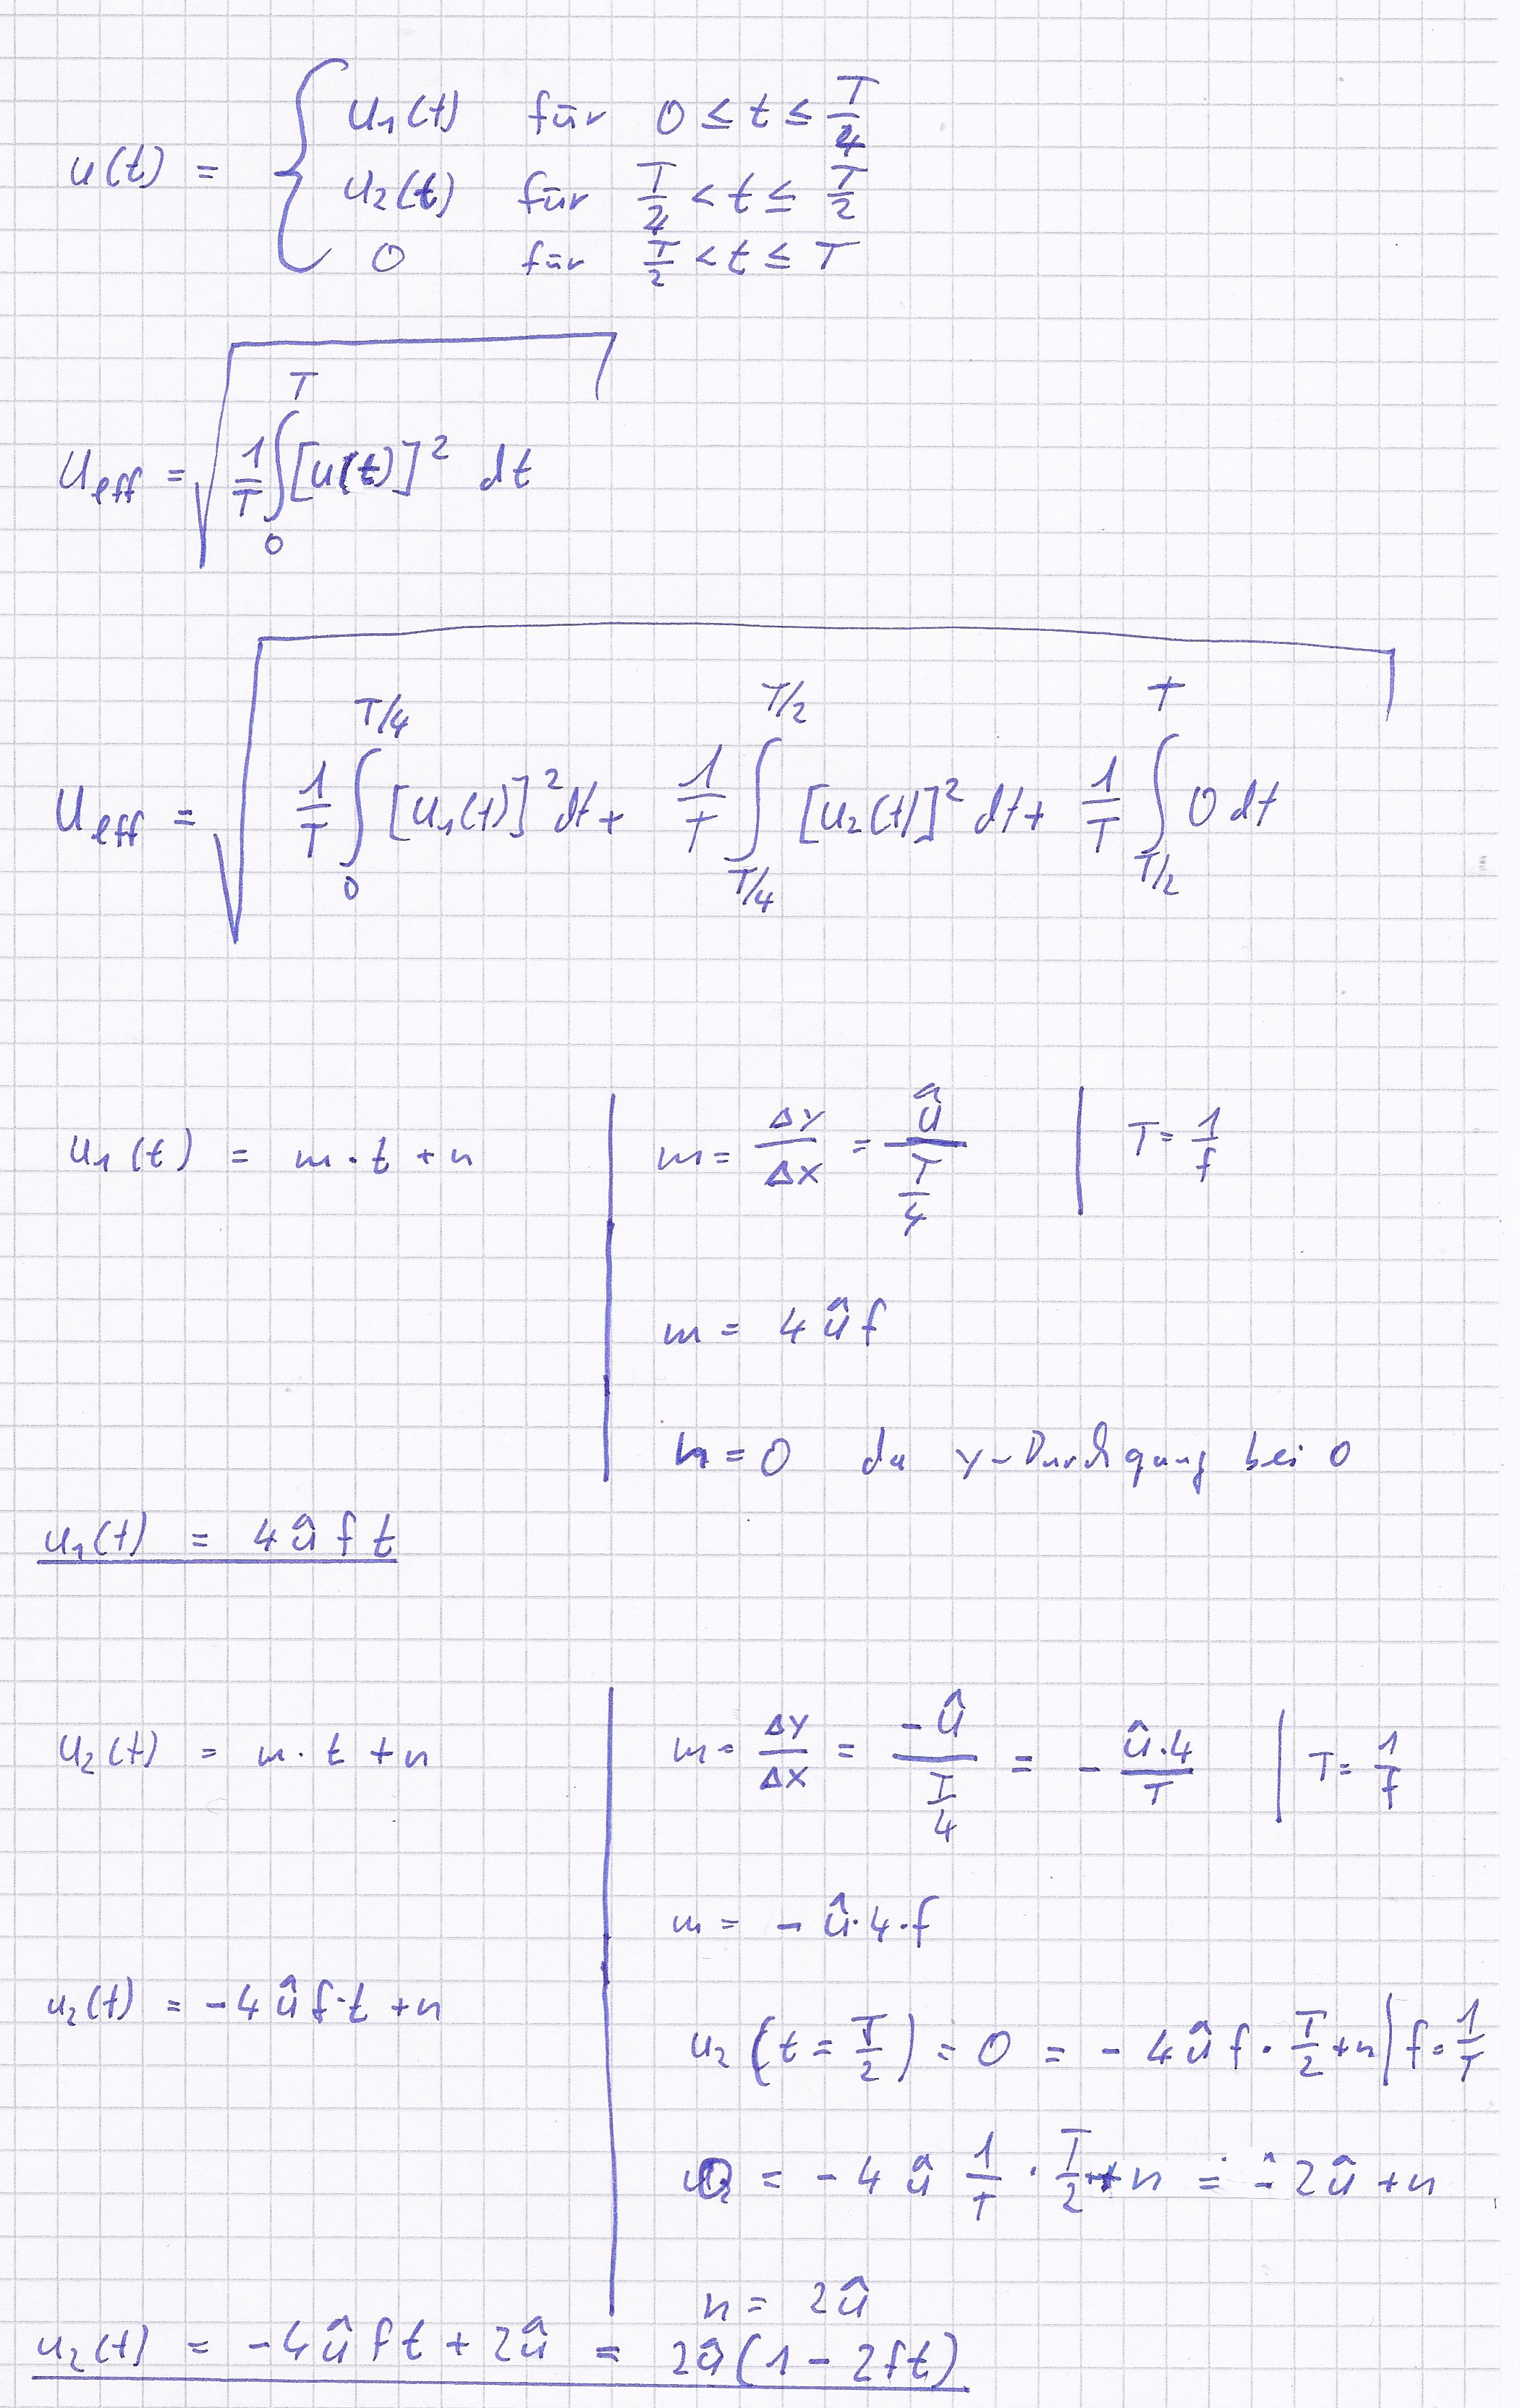 u(t) = { u₁(t) für 0 ≤ t ≤ T/4
u₂(t) für T/4 < t ≤ T/2
0 für T/2 < t ≤ T
U_eff = √( 1/T ∫₀^T [u(t)]² dt )
U_eff = √( 1/T ∫₀^{T/4} [u₁(t)]² dt + 1/T ∫_{T/4}^{T/2} [u₂(t)]² dt + 1/T ∫_{T/2}^{T} 0 dt )
u₁(t) = m · t + n | m = ΔY/ΔX = û/(T/4) | T = 1/f
m = 4 û f
n = 0 da y-Durchgang bei 0
u₁(t) = 4 û f t
u₂(t) = m · t + n | m = ΔY/ΔX = -û/(T/4) = - û·4/T | T = 1/f
m = - û·4·f
u₂(t) = -4 û f·t + n
u₂(t = T/2) = 0 = - 4 û f · T/2 + n | f = 1/T
0 = - 4 û 1/T · T/2 + n = - 2 û + n
n = 2û
u₂(t) = -4 û f t + 2û = 2û(1 - 2ft)